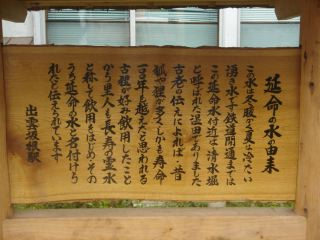 延命の水の由来
この水は冬暖かく夏は冷たい
湧き水です鉄道開通までは
この延命水付近は清水堀
と呼ばれた湿田でありました
古老の伝えによれば、昔
狐や狸が多くしかも寿命
一〇〇年を越えたと思われる
古狸が好み飲用したこと
から里人も長寿の霊水
と称して飲用をはじめその
うち延命の水と名付けら
れたと伝えられています
出雲坂根駅